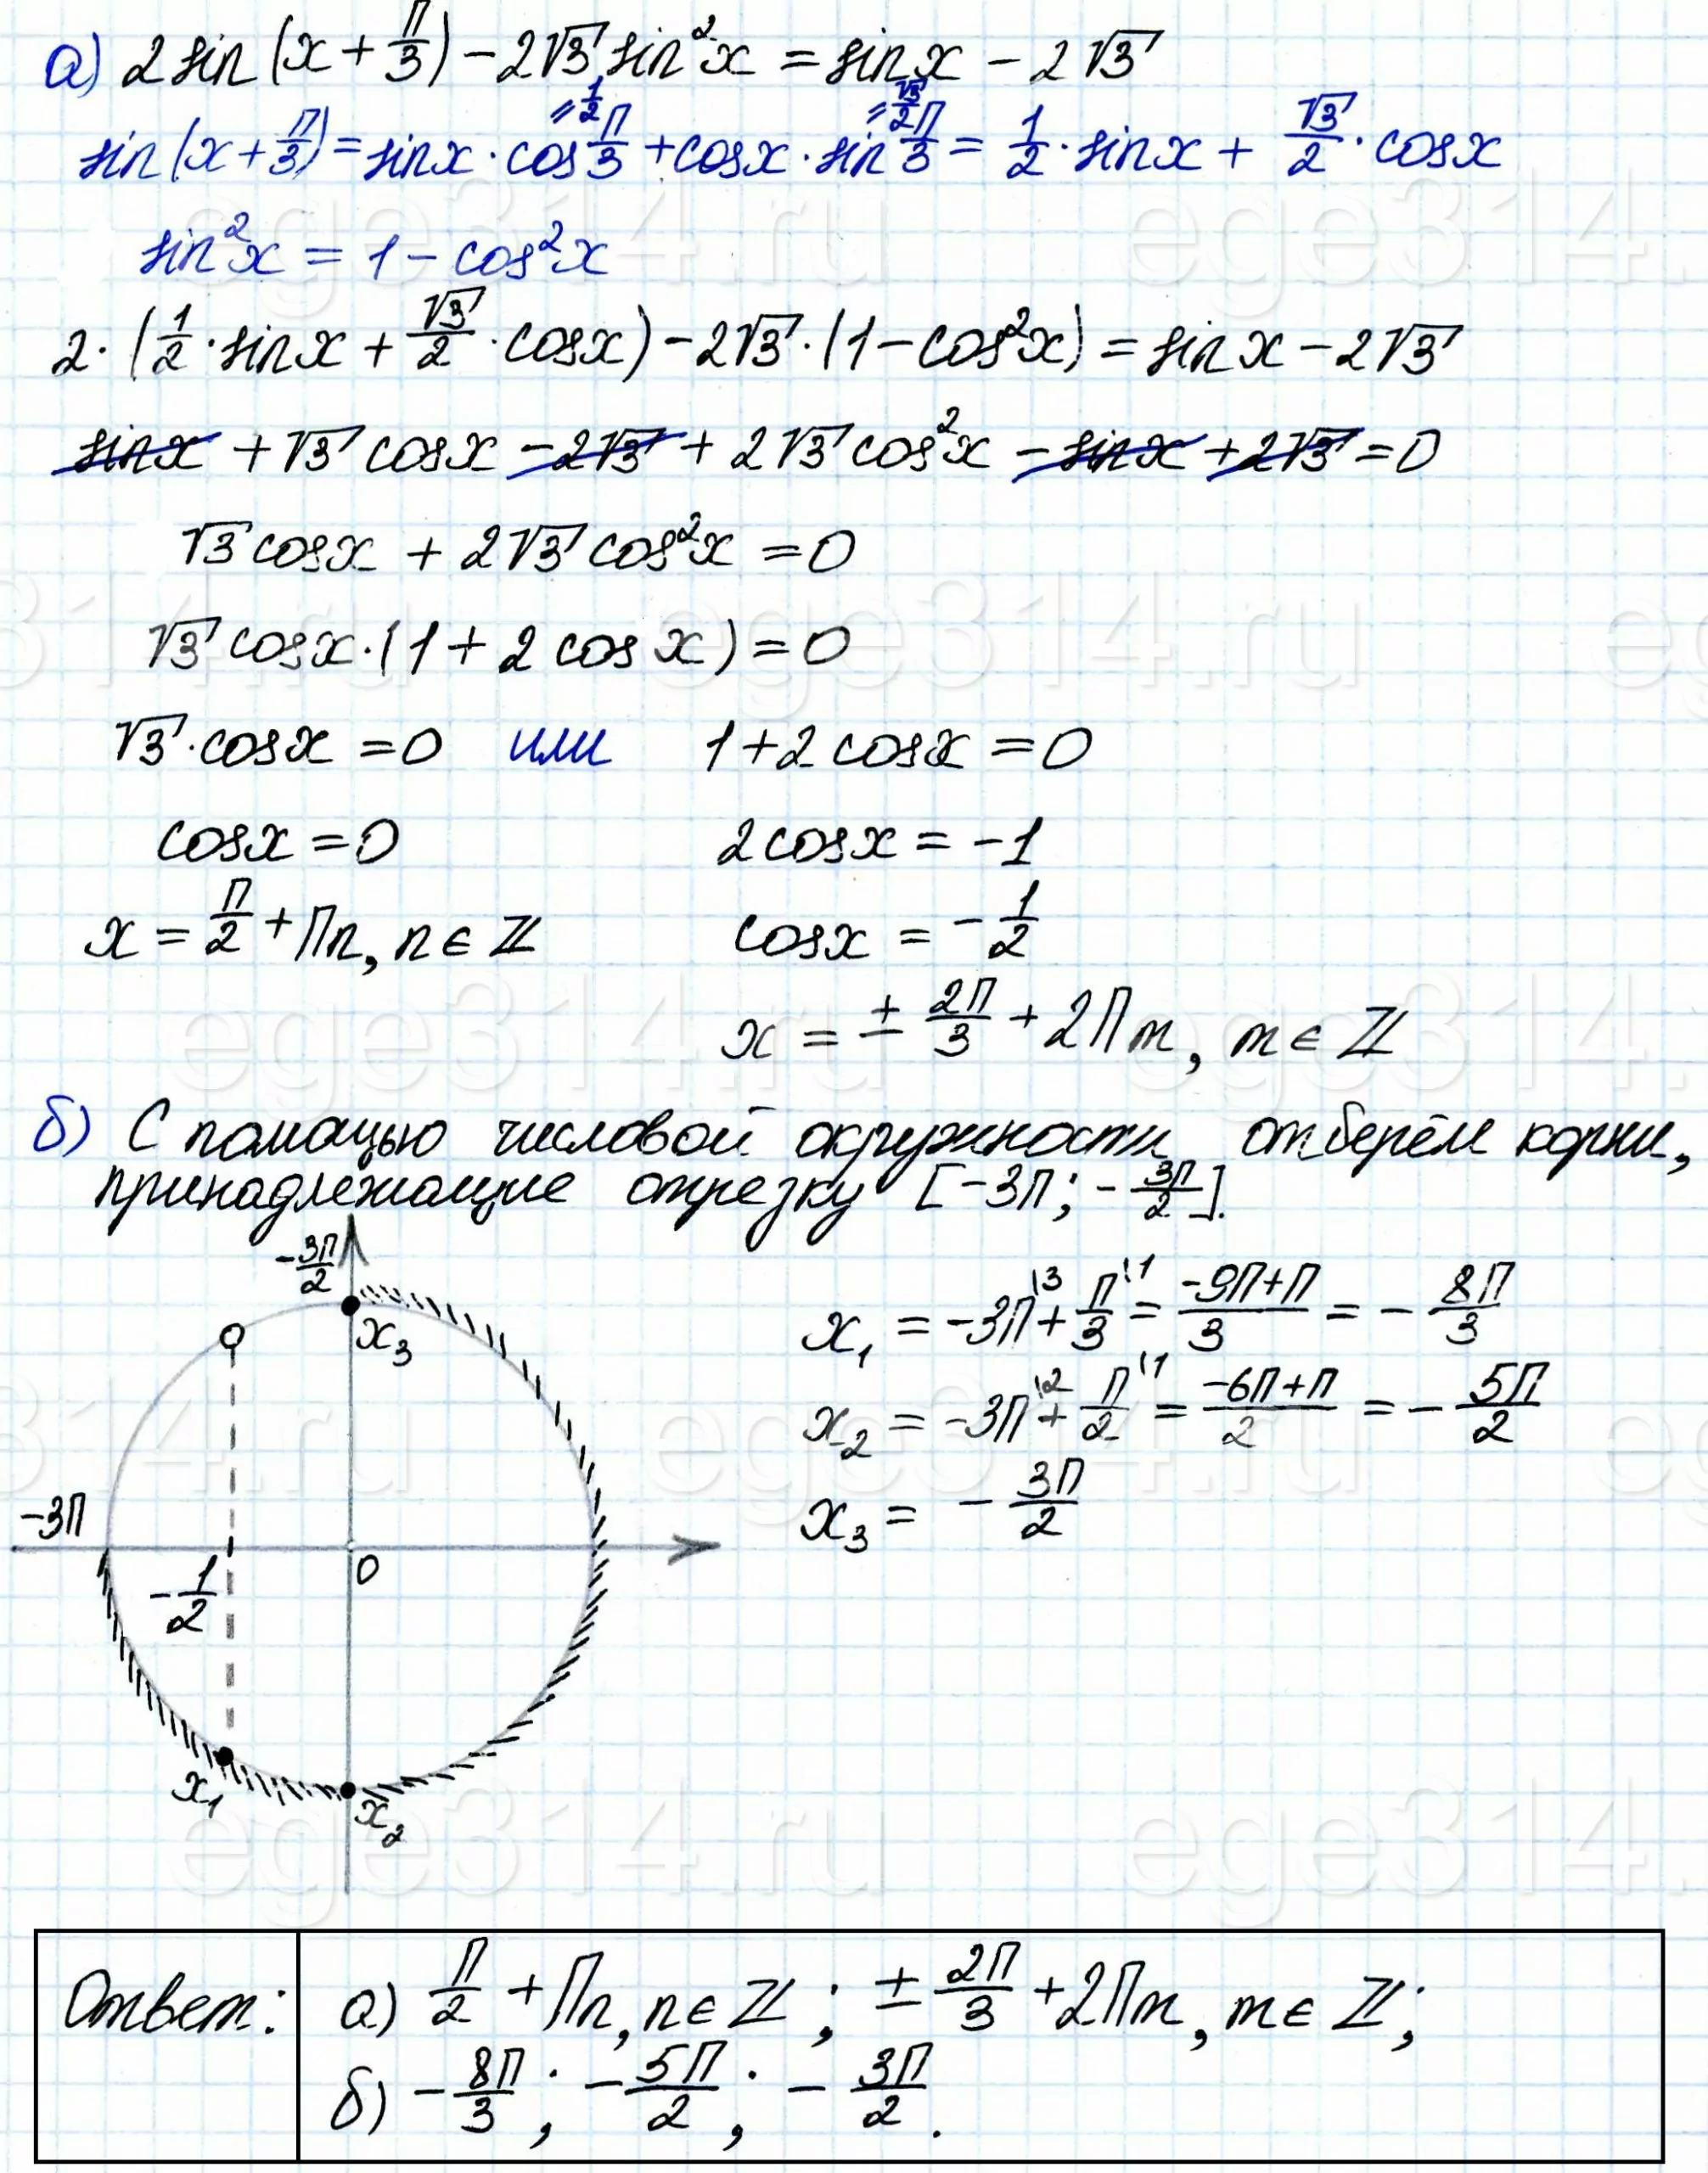 а) 2 sin(x + П/3) − 2√3 sin²x = sinx − 2√3
sin(x + П/3) = sinx · cos П/3 + cosx · sin П/3 = 1/2 · sinx + √3/2 · cosx
= 1/2
= √3/2
sin²x = 1 − cos²x
2 · (1/2 · sinx + √3/2 · cosx) − 2√3 · (1 − cos²x) = sinx − 2√3
sinx + √3 cosx − 2√3 + 2√3 cos²x − sinx + 2√3 = 0
√3 cosx + 2√3 cos²x = 0
√3 cosx · (1 + 2 cosx) = 0
√3 · cosx = 0 или 1 + 2 cosx = 0
cosx = 0 2cosx = −1
x = П/2 + Пn, n ∈ ℤ cosx = −1/2
x = ± 2П/3 + 2Пm, m ∈ ℤ
б) С помощью числовой окружности отберём корни,
принадлежащие отрезку [−3П; −3П/2].
−3П/2
x₃
−3П
−1/2
0
x₁
x₂
x₁ = −3П\3 + П/3\1 = (−9П+П)/3 = −8П/3
x₂ = −3П\2 + П/2\1 = (−6П+П)/2 = −5П/2
x₃ = −3П/2
Ответ: а) П/2 + Пn, n ∈ ℤ; ± 2П/3 + 2Пm, m ∈ ℤ;
б) −8П/3; −5П/2; −3П/2.
ege314.ru